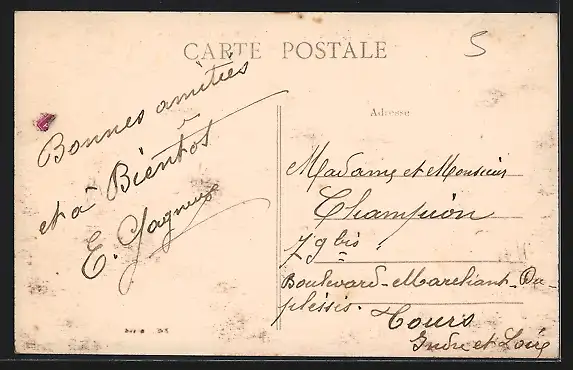 CARTE POSTALE
5
Bonnes amitiés
et à Bientôt
E. Gagneux
Adresse
Madame et Monsieur
Champion
79 bis
Boulevard-Marchant-Du-
pléssis-
Tours
Indre et Loire